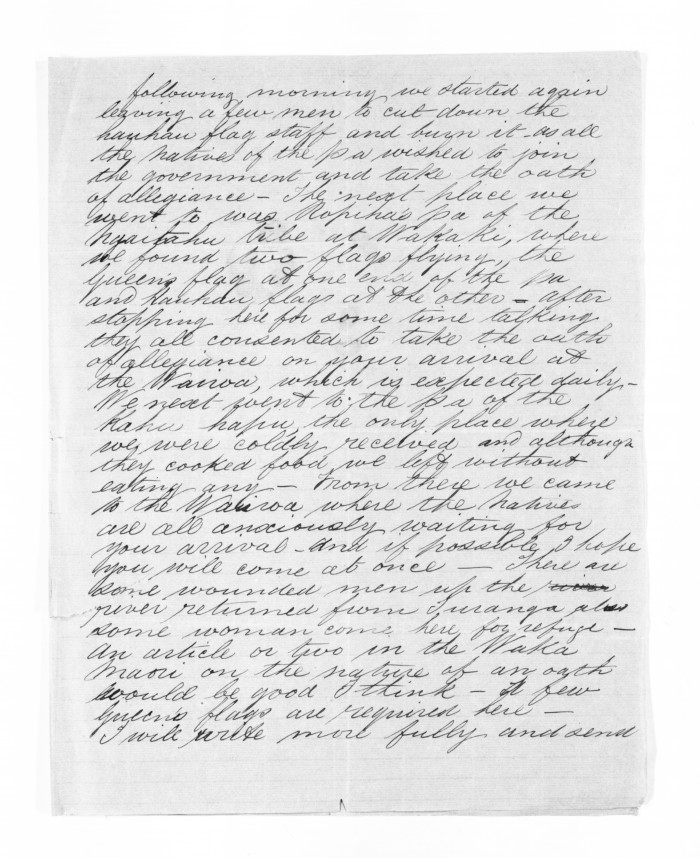 following morning we started again
leaving a few men to cut down the
hauhau flag staff and burn it as all
the natives of the pa wished to join
the government and take the oath
of allegiance – The next place we
went to was Ropiha's pa of the
Ngaitahu tribe at Wakaki, where
we found two flags flying, the
Queen's flag at one end of the pa
and hauhau flags at the other – after
stopping here for some time talking
they all consented to take the oath
of allegiance on your arrival at
the Wairoa, which is expected daily –
We next went to the pa of the
Kahu hapu, the only place where
we were coldly received and although
they cooked food we left without
eating any – From there we came
to the Wairoa where the natives
are all anxiously waiting for
your arrival – and if possible I hope
you will come at once – There are
some wounded men up the river
river returned from Turanga also
some woman come here for refuge –
An article or two in the Waka
Maori on the nature of an oath
would be good I think – A few
Queen's flags are required here –
I will write more fully and send